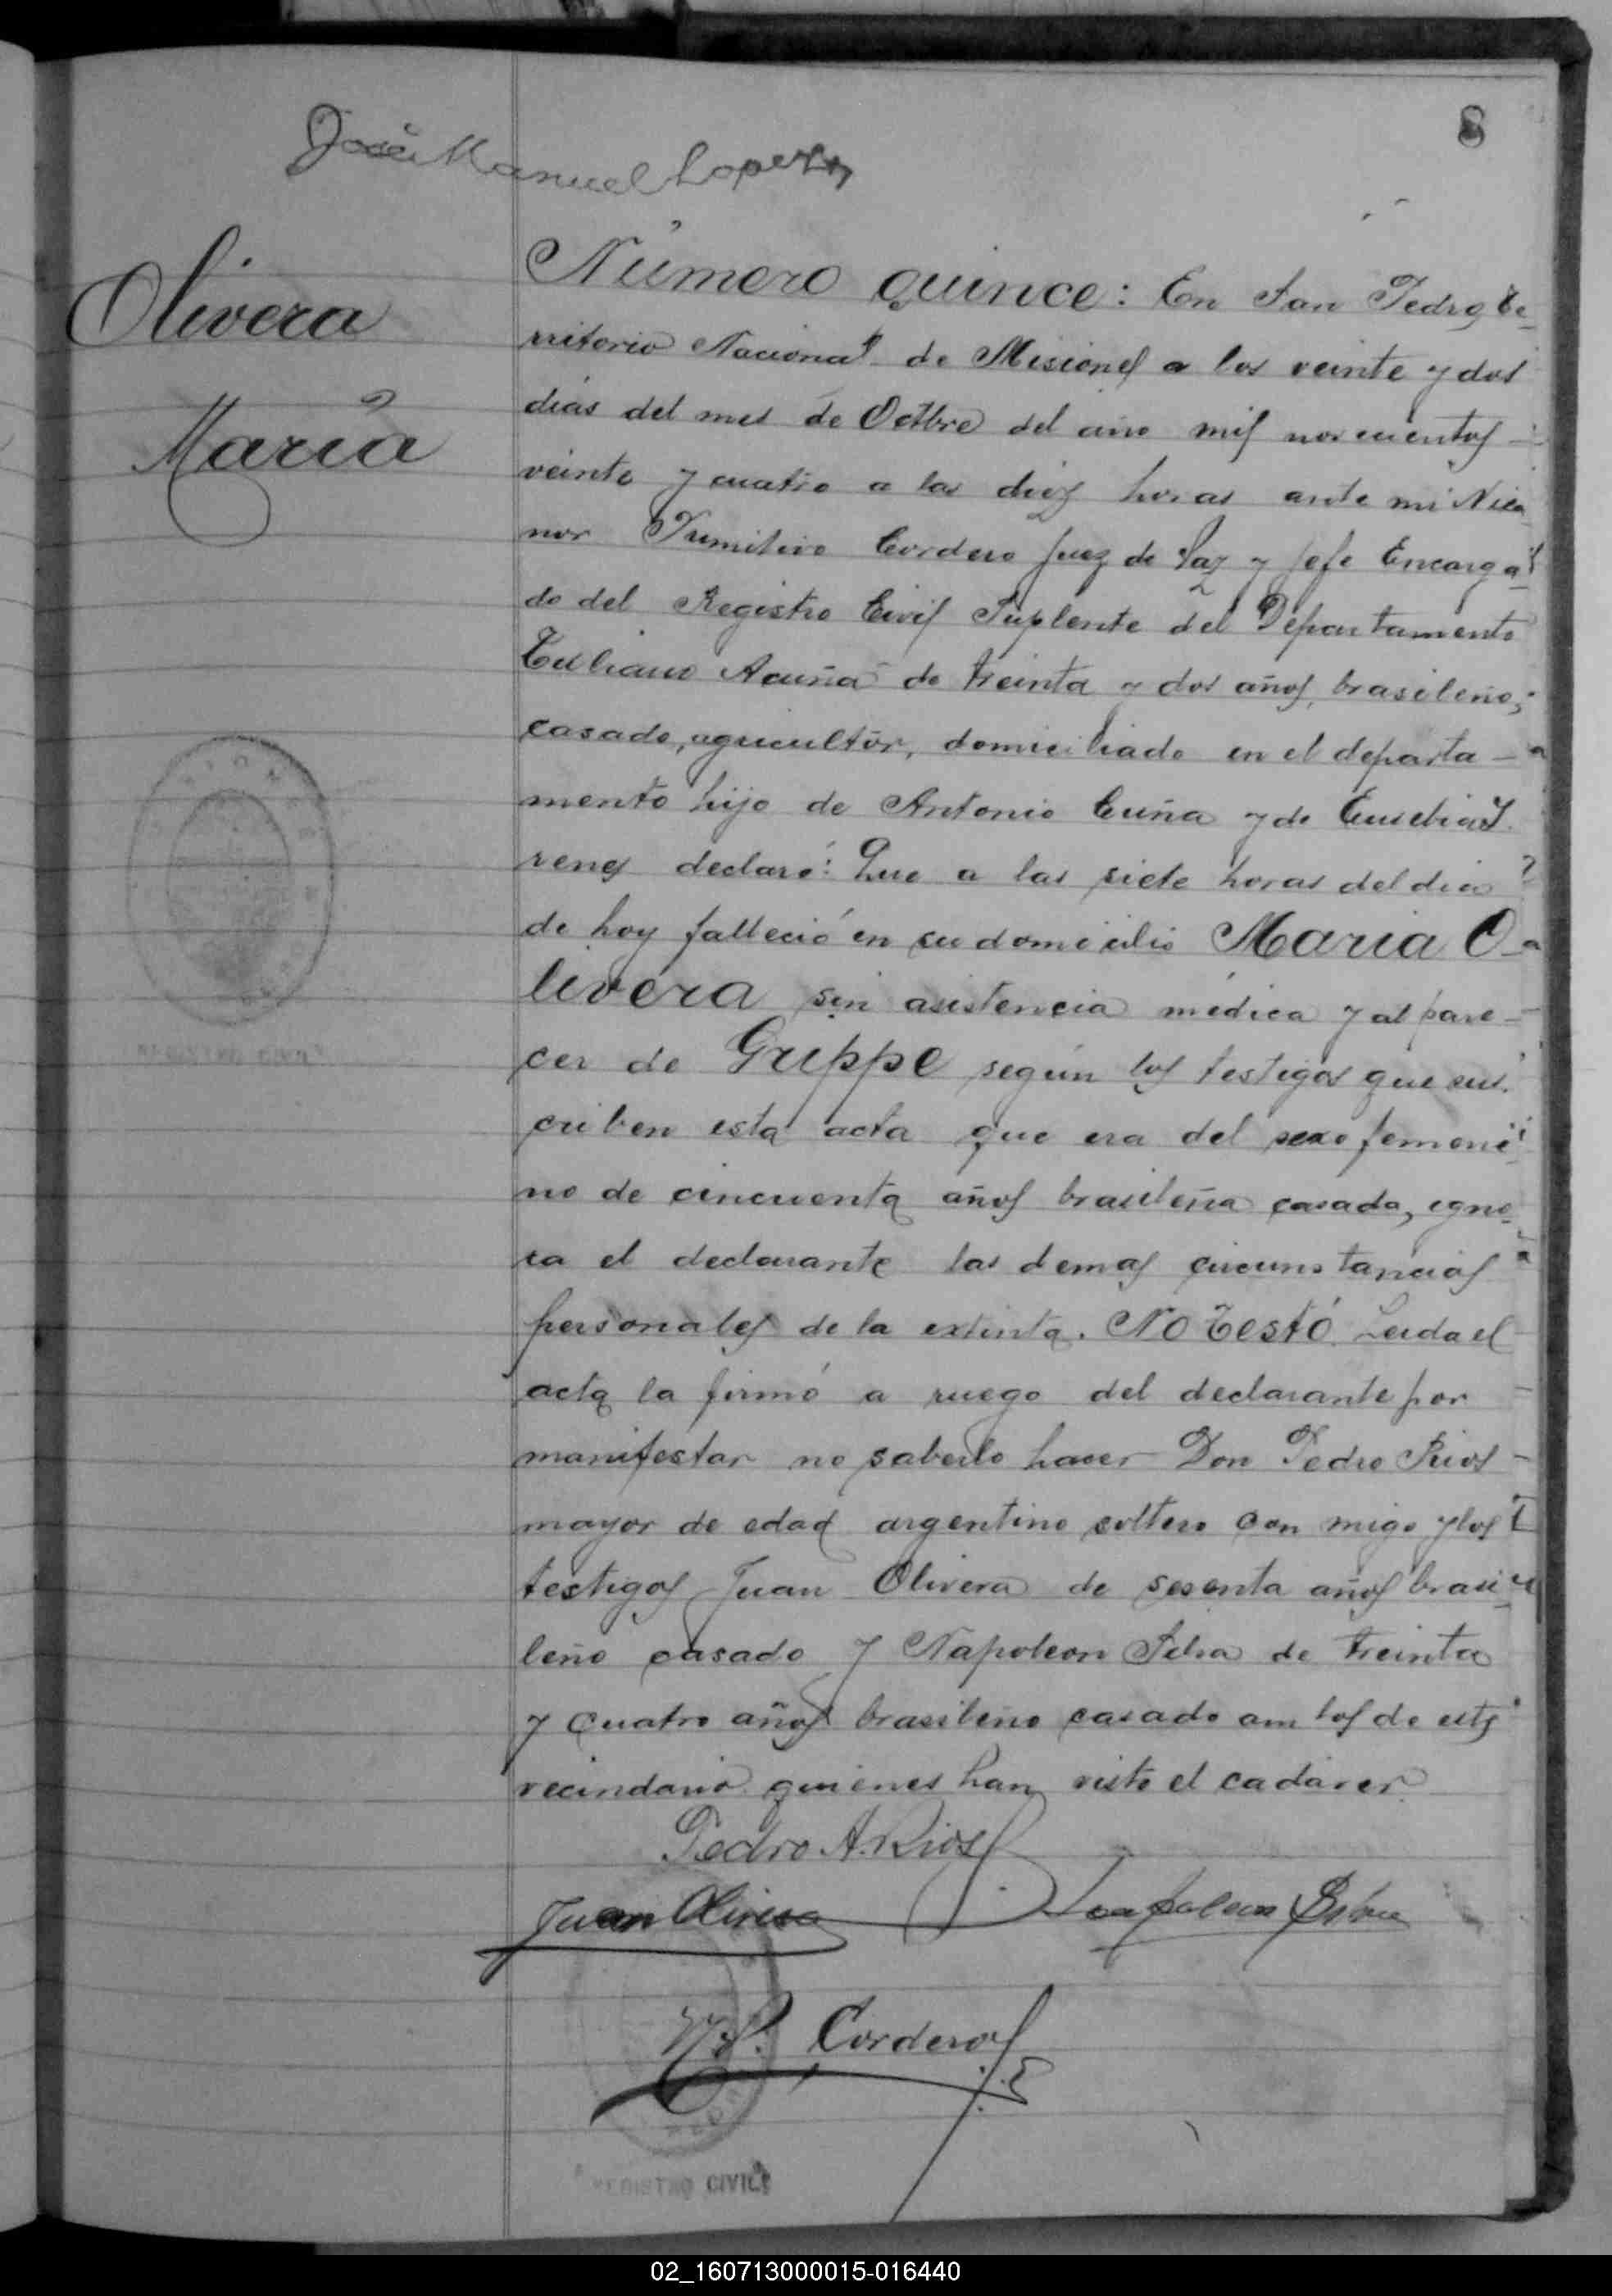 8
José Manuel Lopez
Olivera
María
Número quince: En San Pedro, Te-
rritorio Nacional de Misiones a los veinte y dos
días del mes de Octbre del año mil novecientos
veinte y cuatro a las diez horas ante mi Nica
nor Primitivo Cordero Juez de Paz y Jefe Encarga-
do del Registro Civil Suplente del Departamento
Acuña de treinta y dos años, brasileño,
casado, agricultor, domiciliado en el departa-
mento hijo de Antonio Cuña y de Eusebia Y
renes declaró: Que a las siete horas del dia
de hoy falleció en su domicilio Maria O-
livera sin asistencia médica y al pare-
cer de Grippe según los testigos que sus-
criben esta acta que era del sexo femeni-
no de cincuenta años brasileña casada, igno-
ra el declarante las demas circunstancias
personales de la extinta. No Testó. Leida el
acta la firmó a ruego del declarante por
manifestar no saberlo hacer Don Pedro Rios
mayor de edad argentino soltero con migo y los
testigos Juan Olivera de sesenta años brasi-
leño casado y Napoleon Silva de treinta
y cuatro años brasileño casado ambos de este
vecindario quienes han visto el cadáver
Pedro A. Rios
Juan Olivera Napoleon Silva
N.P. Cordero
REGISTRO CIVIL
REGISTRO CIVIL
02_160713000015-016440